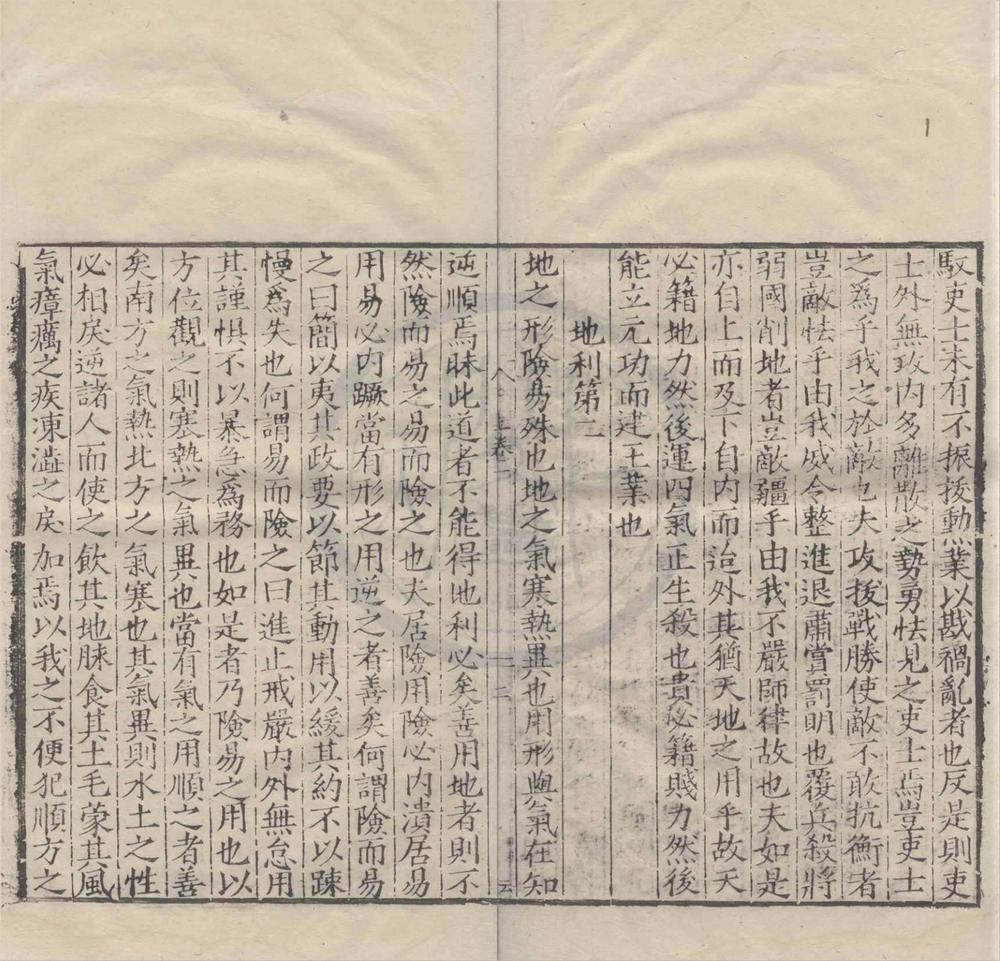 馭吏士未有不振拔動業以戡禍亂者也反是則吏
士外無攻內多離散之勢勇怯見之吏士焉豈吏士
之為乎我之於敵也夫攻拔戰勝使敵不敢抗衡者
豈敵怯乎由我威令整進退肅賞罰明也覆兵殺將
弱國削地者豈敵彊乎由我不嚴師律故也夫如是
亦自上而及下自內而治外其猶天地之用乎故天
必籍地力然後運四氣正生殺也貴必籍賤力然後
能立元功而建王業也
地利第二
地之形險易殊也地之氣寒熱異也用形與氣在知
逆順焉昧此道者不能得地利必矣善用地者則不
然險而易之易而險之也夫居險用險必內潰居易
用易必內蹶當有形之用逆之者善矣何謂險而易
之曰簡以夷其政要以節其動用以緩其約不以踈
慢爲失也何謂易而險之曰進止戒嚴內外無怠用
其謹惧不以暴急爲務也如是者乃險易之用也以
方位觀之則寒熱之氣異也當有氣之用順之者善
矣南方之氣熱北方之氣寒也其氣異則水土之性
必相戾逆諸人而使之飲其地脉食其土毛蒙其風
氣瘴癘之疾凍澁之戾加焉以我之不便犯順方之